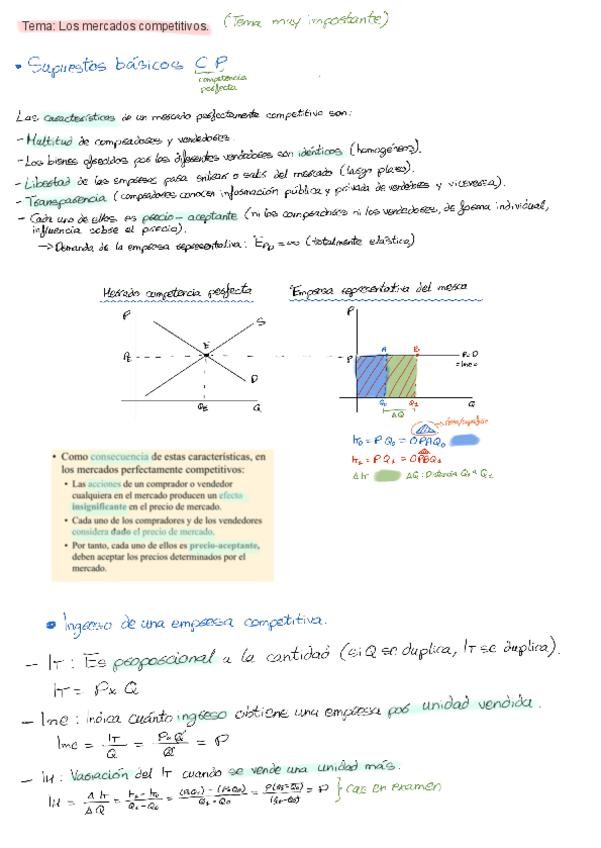 Tema: Los mercados competitivos. (Tema muy importante)
• Supuestos básicos CP
competencia perfecta
Las características de un mercado perfectamente competitivo son:
- Multitud de compradores y vendedores.
- Los bienes ofrecidos por los diferentes vendedores son idénticos (homogéneos).
- Libertad de las empresas para entrar o salir del mercado (largo plazo).
- Transparencia (compradores conocen información pública y privada de vendedores y viceversa).
- Cada uno de ellos es precio-aceptante (ni los compradores ni los vendedores, de forma individual,
influencia sobre el precio).
→ Demanda de la empresa representativa: = ∞ (totalmente elástica)
Mercado competencia perfecta
Empresa representativa del
P
S
E
PE
D
QE
Q
P
A
B
P
P=D
Q0
Q1
Q
ΔQ
It0 = P Q0 = OPAQ0
It1 = P Q1 = OPBQ1
ΔIt
ΔQ: Distancia Q0 a Q1
• Como consecuencia de estas características, en
los mercados perfectamente competitivos:
• Las acciones de un comprador o vendedor
cualquiera en el mercado producen un efecto
insignificante en el precio de mercado.
• Cada uno de los compradores y de los vendedores
considera dado el precio de mercado.
• Por tanto, cada uno de ellos es precio-aceptante,
deben aceptar los precios determinados por el
mercado.
• Ingreso de una empresa competitiva.
- IT: Es proporcional a la cantidad (si Q se duplica, IT se duplica).
IT = P x Q
- Ime: indica cuánto ingreso obtiene una empresa por unidad vendida.
Ime = IT/Q = P·Q/Q = P
- IM: Variación del IT cuando se vende una unidad más.
IM = ΔIT/ΔQ = It1 - It0/Q1 - Q0 = (PQ1) - (PQ0)/Q1 - Q0 = P(Q1-Q0)/(Q1-Q0) = P } Cae en examen